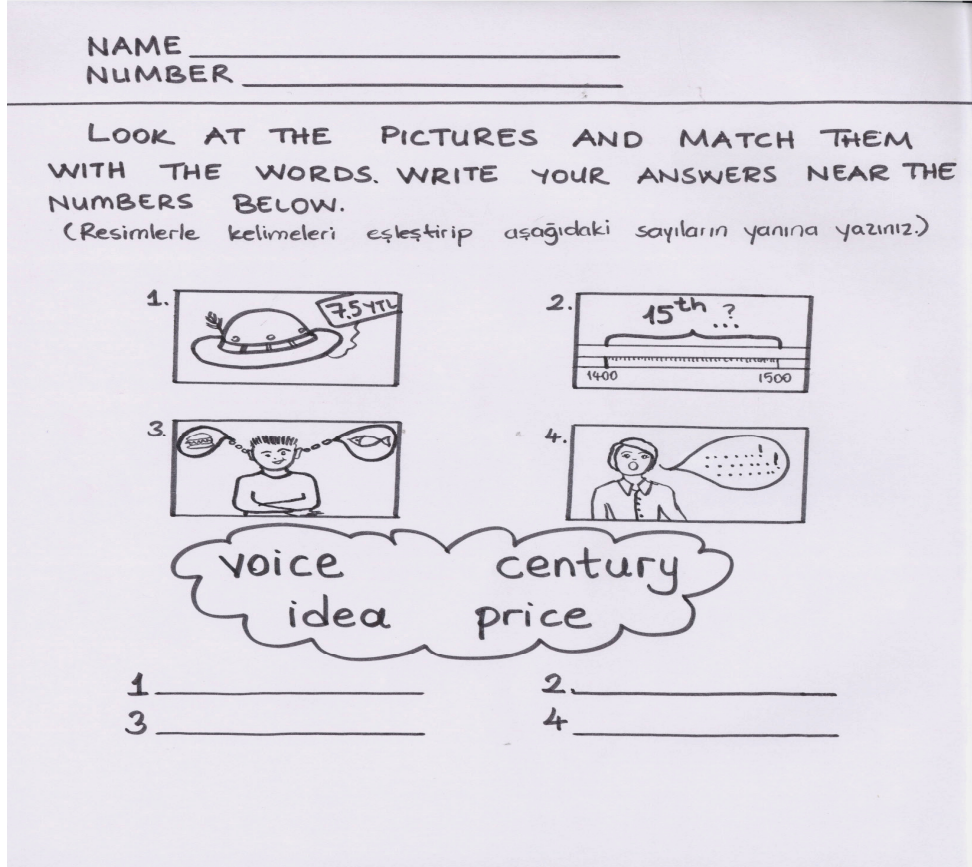 NAME
NUMBER
LOOK AT THE PICTURES AND MATCH THEM
WITH THE WORDS. WRITE YOUR ANSWERS NEAR THE
NUMBERS BELOW.
(Resimlerle kelimeleri eşleştirip aşağıdaki sayıların yanına yazınız.)
1.
7.5 YTL
2.
15th ?
...
1400 1500
3.
4.
! !
voice century
idea price
1 2.
3 4